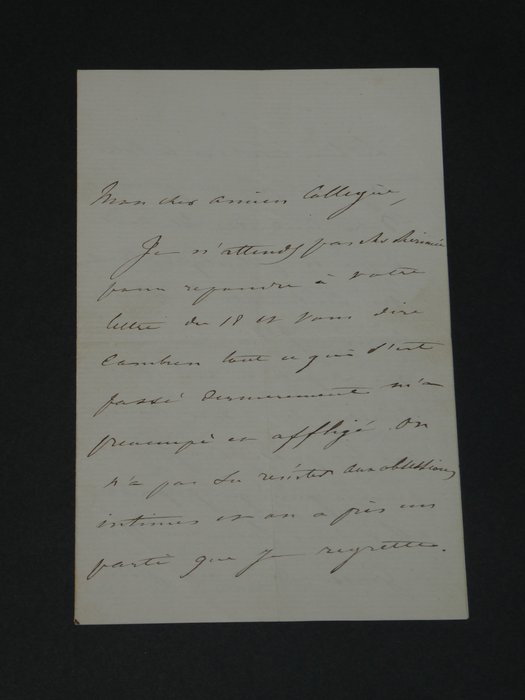 Mon cher ancien Collègue,
Je n'attends pas
pour repondre à votre
lettre du 18 et vous dire
combien tout ce qui s'est
passé dernierement m'a
preoccupé et affligé. On
n'a pas su résister aux obsessions
intimes et on a pris un
parti que je regrette.